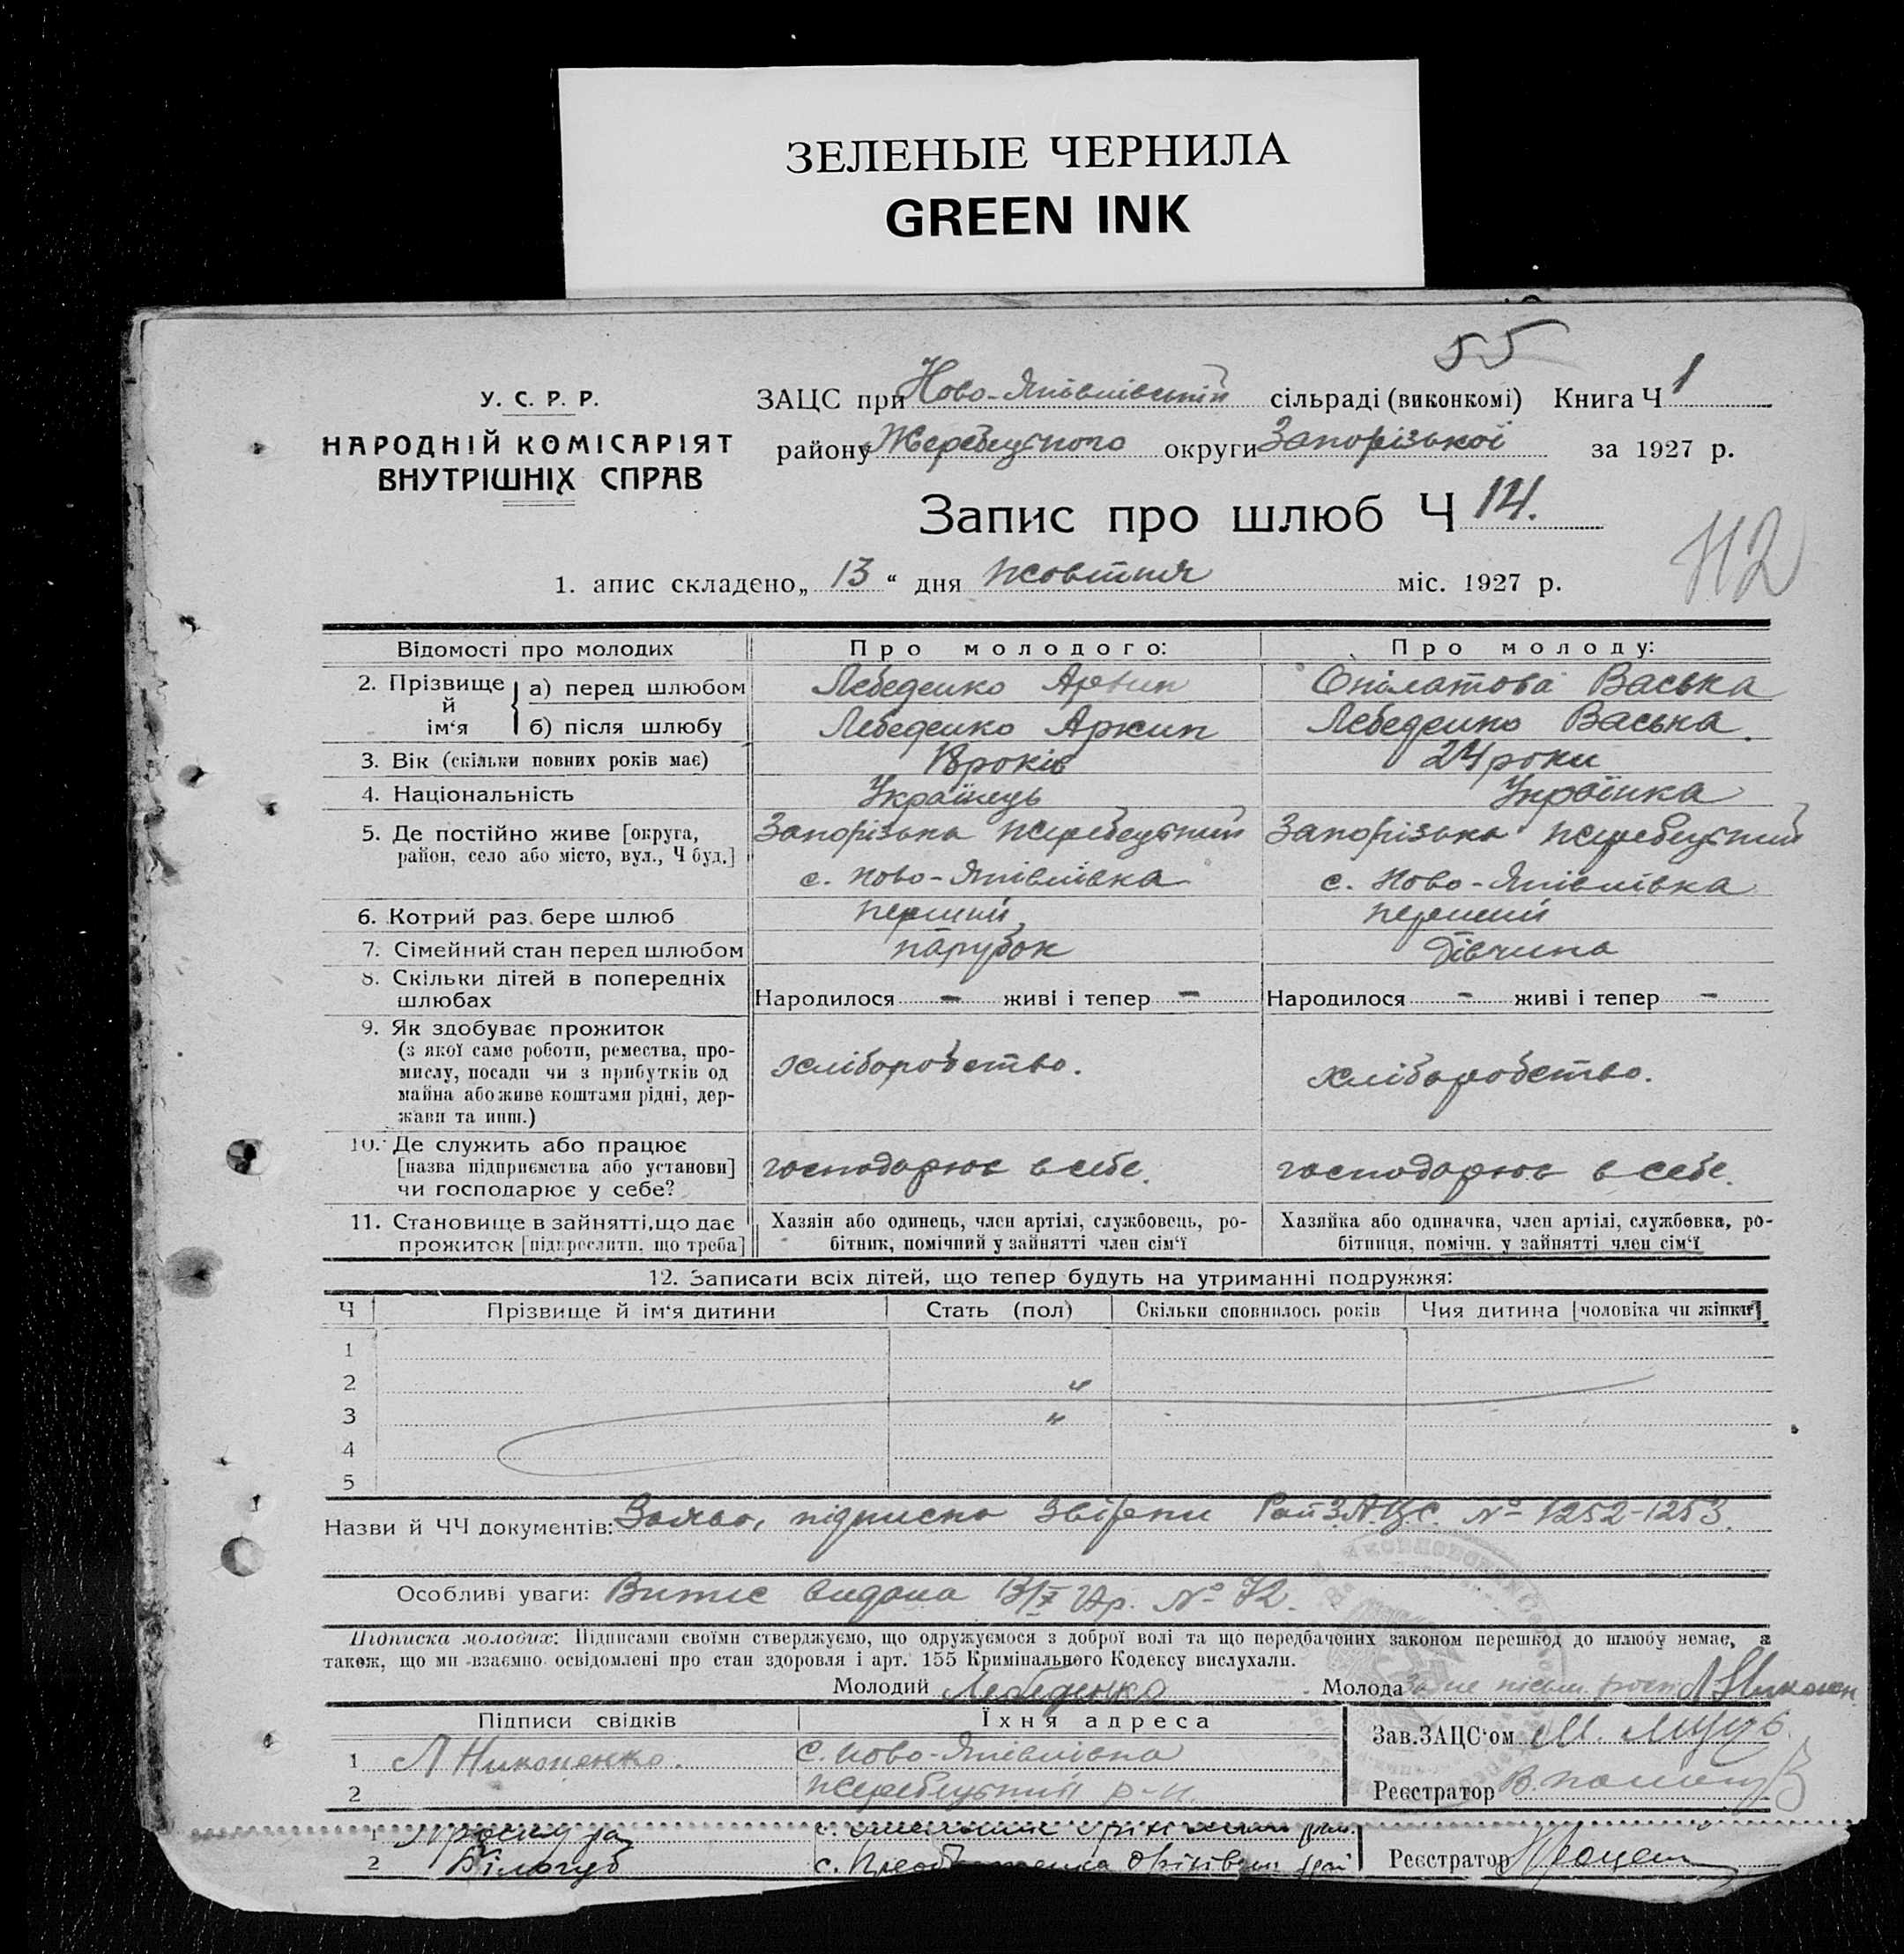 ЗЕЛЕНЫЕ ЧЕРНИЛА
GREEN INK
55
У. С. Р. Р.
НАРОДНІЙ КОМІСАРІЯТ
ВНУТРІШНІХ СПРАВ
ЗАЦС при Ново- сільраді (виконкомі) Книга Ч 1
району Жеребецького округи Запорізької за 1927 р.
Запис про шлюб Ч 14.
112
1. апис складено „ 13 “ дня жовтня міс. 1927 р.
Відомості про молодих Про молодого: Про молоду:
2. Прізвище й ім‘я а) перед шлюбом Лебеденко Архип Васька
б) після шлюбу Лебеденко Архип Лебеденко Васька.
3. Вік (скільки повних років має) 18 років 24 роки
4. Національність Українець Українка
5. Де постійно живе [округа, Запорізька Жеребецький Запорізька Жеребецький
район, село або місто, вул., Ч буд.]
с. Ново- с. Ново-
6. Котрий раз бере шлюб перший перший
7. Сімейний стан перед шлюбом парубок дівчина
8. Скільки дітей в попередніх
шлюбах Народилося - живі і тепер - Народилося - живі і тепер -
9. Як здобуває прожиток
(з якої саме роботи, ремества, про-
мислу, посади чи з прибутків од
майна або живе коштами рідні, дер-
жави та инш.)
хліборобство. хліборобство.
10. Де служить або працює
[назва підприємства або установи]
чи господарює у себе?
господарює в себе. господарює в себе.
11. Становище в зайнятті, що дає
прожиток [підкреслити, що треба]
Хазяін або одинець, член артілі, службовець, ро-
бітник, помічний у зайнятті член сім‘ї
Хазяйка або одиначка, член артілі, службовка, ро-
бітниця, помічн. у зайнятті член сім‘ї
12. Записати всіх дітей, що тепер будуть на утриманні подружжя:
Ч Прізвище й ім‘я дитини Стать (пол) Скільки сповнилось років Чия дитина [чоловіка чи жінки]
1
2 "
3 "
4
5
Назви й ЧЧ документів: Заява, підписка звірени Рай З.А.Ц.С. № 1252-1253.
Особливі уваги: Витис видана 13/X 27р. № 72.
Підписка молодих: Підписами своїми стверджуємо, що одружуємося з доброї волі та що передбачених законом перешкод до шлюбу немає, а
також, що ми взаємно освідомлені про стан здоровля і арт. 155 Кримінального Кодексу вислухали.
Молодий Лебеденко Молода
Підписи свідків Їхня адреса
Зав.ЗАЦС‘ом
1 Л Никоненко. с. Ново-
2 Жеребецький р-н.
Реєстратор
1
2 Білогуб с.
Реєстратор